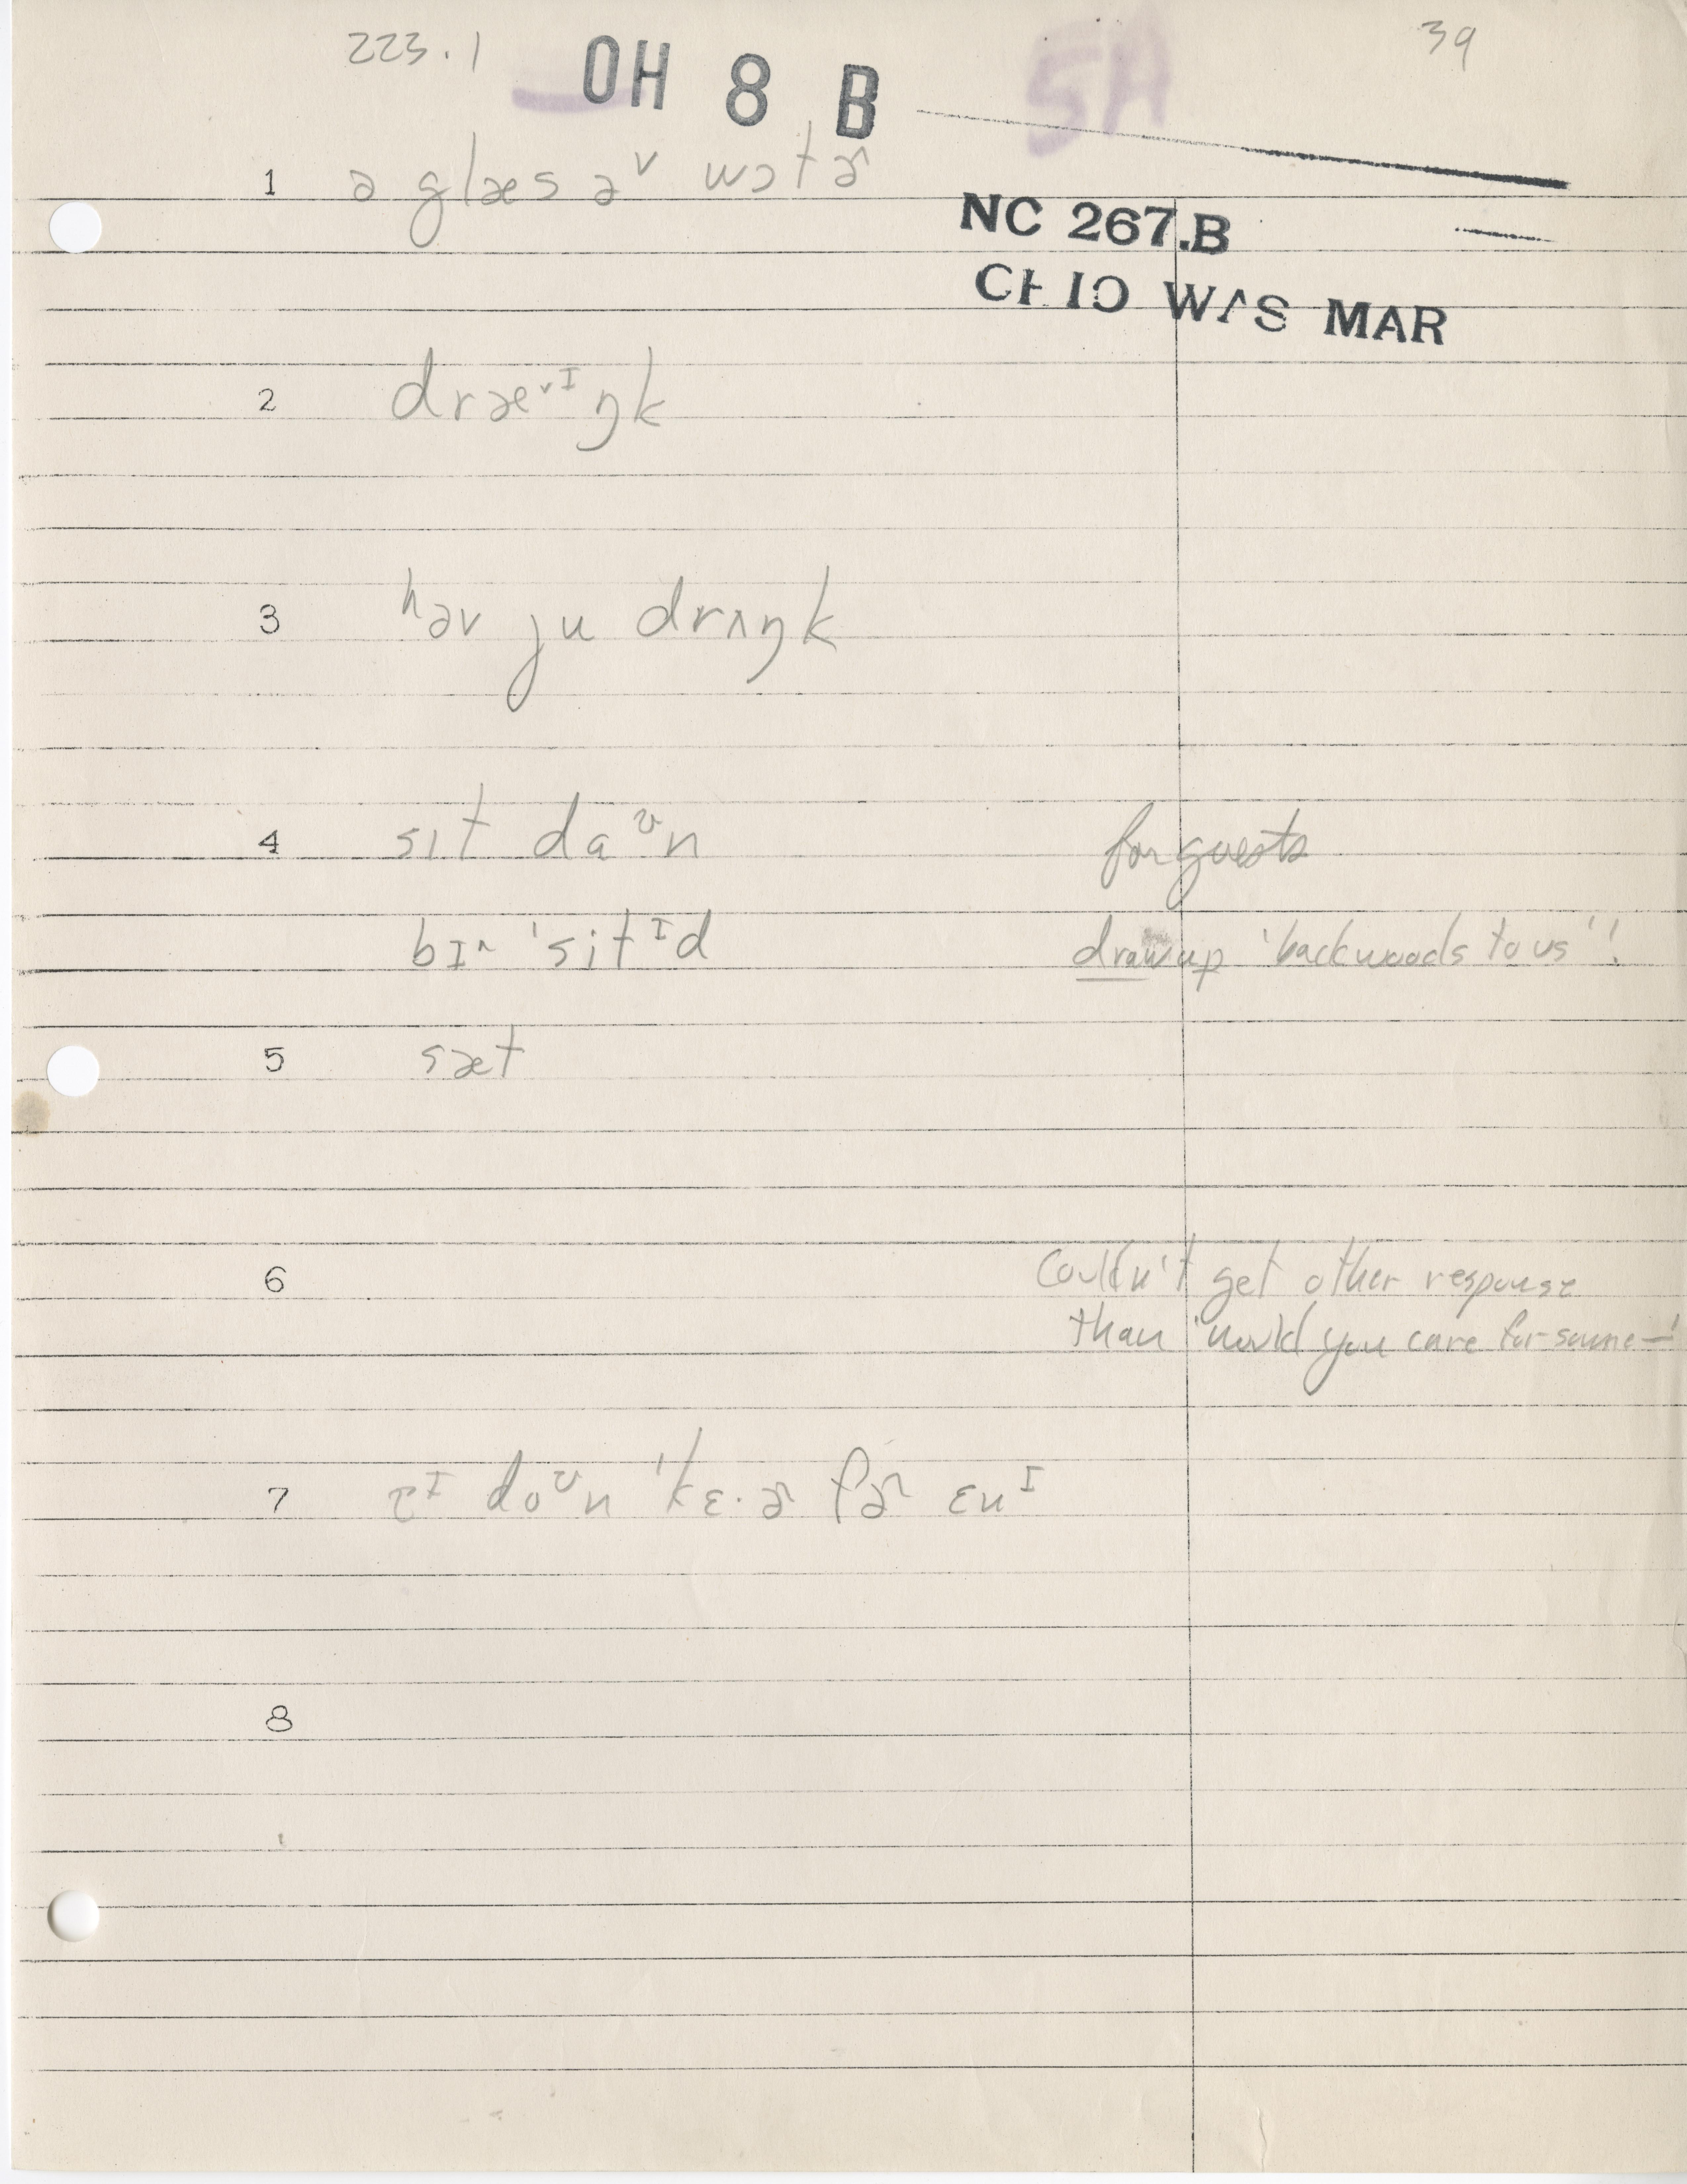 223.1 OH 8 B SH 39
1 ə glæs əᵛ wɔtɚ
NC 267.B
OHIO WAS MAR
2 dræ˅ᴵŋk
3 həv ju drʌŋk
4 sɪt daᶷn for guests
bɪ^ 'sitᴵd draw up 'backwoods to us'!
5 sæt
6 Couldn't get other response
than 'would you care for some—'
7 doᶷn 'kɛ·ɚ fɚ ɛnᴵ
8